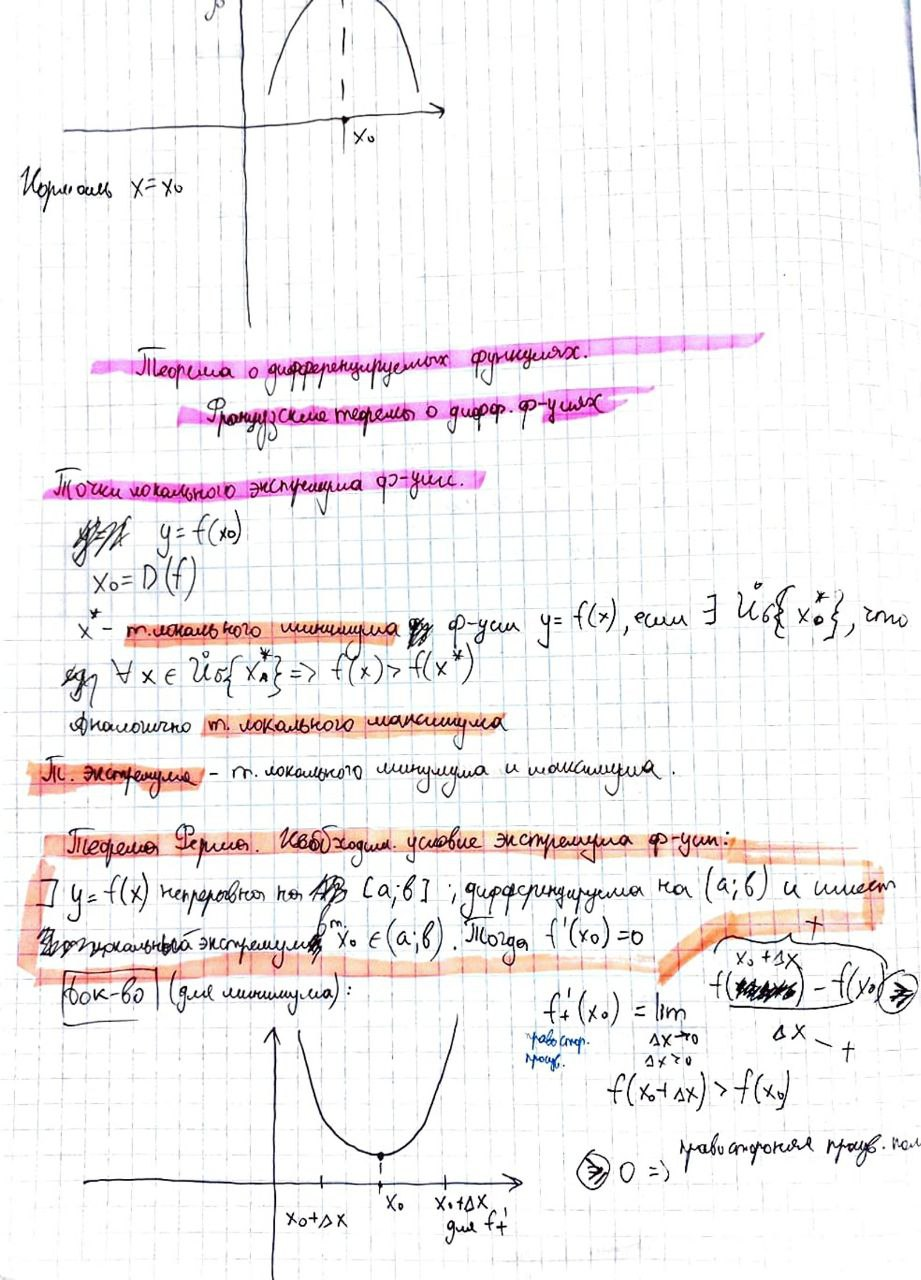 x₀
Нормаль x = x₀
Теорема о дифференцируемых функциях.
Французские теоремы о дифф. ф-циях
Точки локального экстремума ф-ции.
y = f(x₀)
x₀ = D(f)
x* - т. локального минимума ф-ции y = f(x), если ∃ Ůδ{x₀*}, что
∀ x ∈ Ůδ{x*} => f(x) > f(x*)
Аналогично т. локального максимума
Т. экстремума - т. локального минимума и максимума.
Теорема Ферма. Необходим. условие экстремума ф-ции:
] y = f(x) непрерывна на [a;b]; дифференцируема на (a;b) и имеет
локальный экстремум в т. x₀ ∈ (a;b). Тогда f'(x₀) = 0
Док-во (для минимума):
f'₊(x₀) = lim f(x₀+Δx) - f(x₀) ⩾
+
правостор. произв.
Δx→0
Δx>0
Δx - +
f(x₀+Δx) > f(x₀)
⩾ 0 =>
правостороняя произв. пол
x₀+Δx
x₀
x₀+Δx
для f'₊